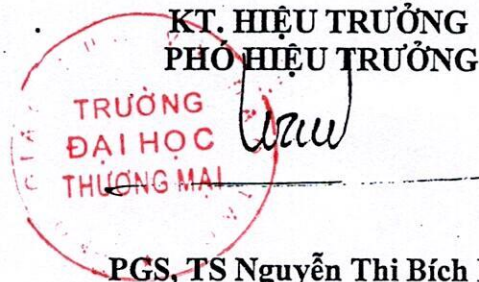 KT. HIỆU TRƯỞNG
PHÓ HIỆU TRƯỞNG
TRƯỜNG
ĐẠI HỌC
THƯƠNG MẠI
PGS, TS Nguyễn Thị Bích